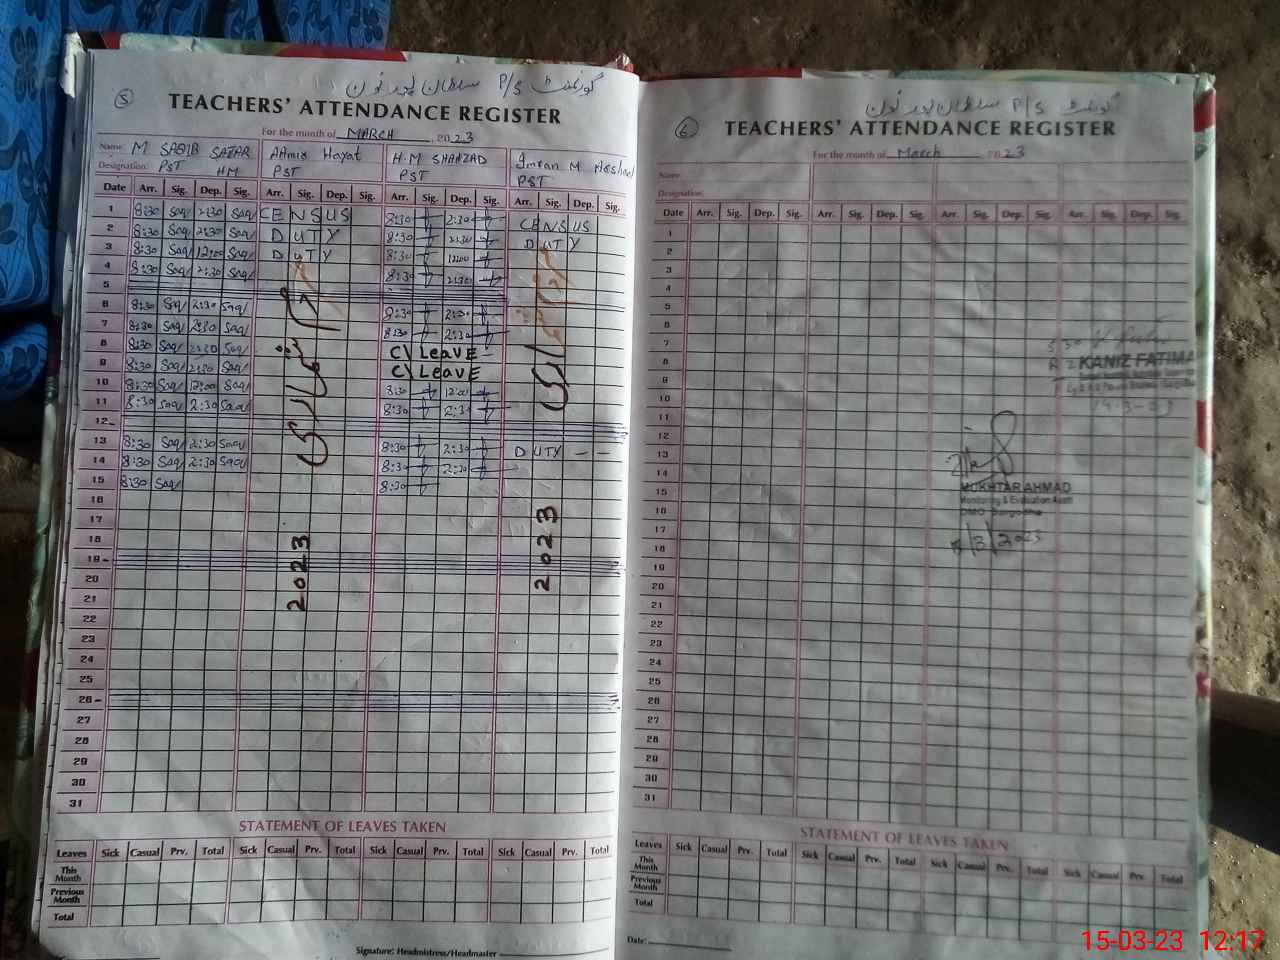 گورنمنٹ P/S سلطان پور نون
5
TEACHERS' ATTENDANCE REGISTER
For the month of MARCH 2023
Name: M SAQIB SATAR Aamir Hayat H.M SHAHZAD Imran M Arshad
Designation: PST HM PST PST PST
Date Arr. Sig. Dep. Sig. Arr. Sig. Dep. Sig. Arr. Sig. Dep. Sig. Arr. Sig. Dep. Sig.
1 8:30 Saq 2:30 Saq CENSUS 8:30 2:30 CENSUS
2 8:30 Saq 2:30 Saq DUTY 8:30 2:30 DUTY
3 8:30 Saq 12:00 Saq DUTY 8:30 12:00
4 8:30 Saq 2:30 Saq 8:30 2:30
5
6 8:30 Saq 2:30 Saq 8:30 2:30
7 8:30 Saq 2:30 Saq 8:30 2:30
8 8:30 Saq 2:30 Saq C\ Leave
9 8:30 Saq 2:30 Saq C\ Leave
10 8:30 Saq 12:00 Saq 8:30 12:00
11 8:30 Saq 2:30 Saq 8:30 2:30
12
13 8:30 Saq 2:30 Saq 8:30 2:30 DUTY
14 8:30 Saq 2:30 Saq 8:30 2:30
15 8:30 Saq 8:30
16
17
18
19
20
21
22
23
24
25
26
27
28
29
30
31
مردم شماری
2023
مردم شماری
2023
STATEMENT OF LEAVES TAKEN
Leaves Sick Casual Prv. Total Sick Casual Prv. Total Sick Casual Prv. Total Sick Casual Prv. Total
This Month
Previous Month
Total
Signature: Headmistress/Headmaster
گورنمنٹ P/S سلطان پور نون
6
TEACHERS' ATTENDANCE REGISTER
For the month of March 2023
Name:
Designation:
Date Arr. Sig. Dep. Sig. Arr. Sig. Dep. Sig. Arr. Sig. Dep. Sig. Arr. Sig. Dep. Sig.
1
2
3
4
5
6
7
8
9
10
11
12
13
14
15
16
17
18
19
20
21
22
23
24
25
26
27
28
29
30
31
KANIZ FATIMA
14-3-23
MUKHTAR AHMAD
Monitoring & Evaluation Asstt
DMO Sargodha
8/3/2023
STATEMENT OF LEAVES TAKEN
Leaves Sick Casual Prv. Total Sick Casual Prv. Total Sick Casual Prv. Total Sick Casual Prv. Total
This Month
Previous Month
Total
Date:
15-03-23 12:17